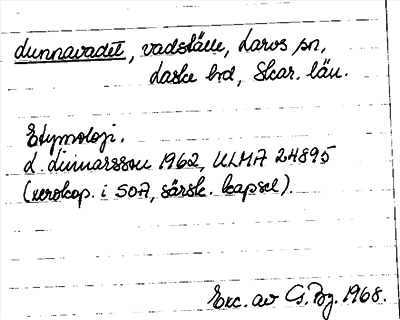 dunnavadet, vadställe, Larvs sn,
Laske hd, Skar. län.
Etymologi.
L. Linnarsson 1962, ULMA 24895
(xerokop. i SOA, särsk. kapsel).
Exc. av G. Bg. 1968.